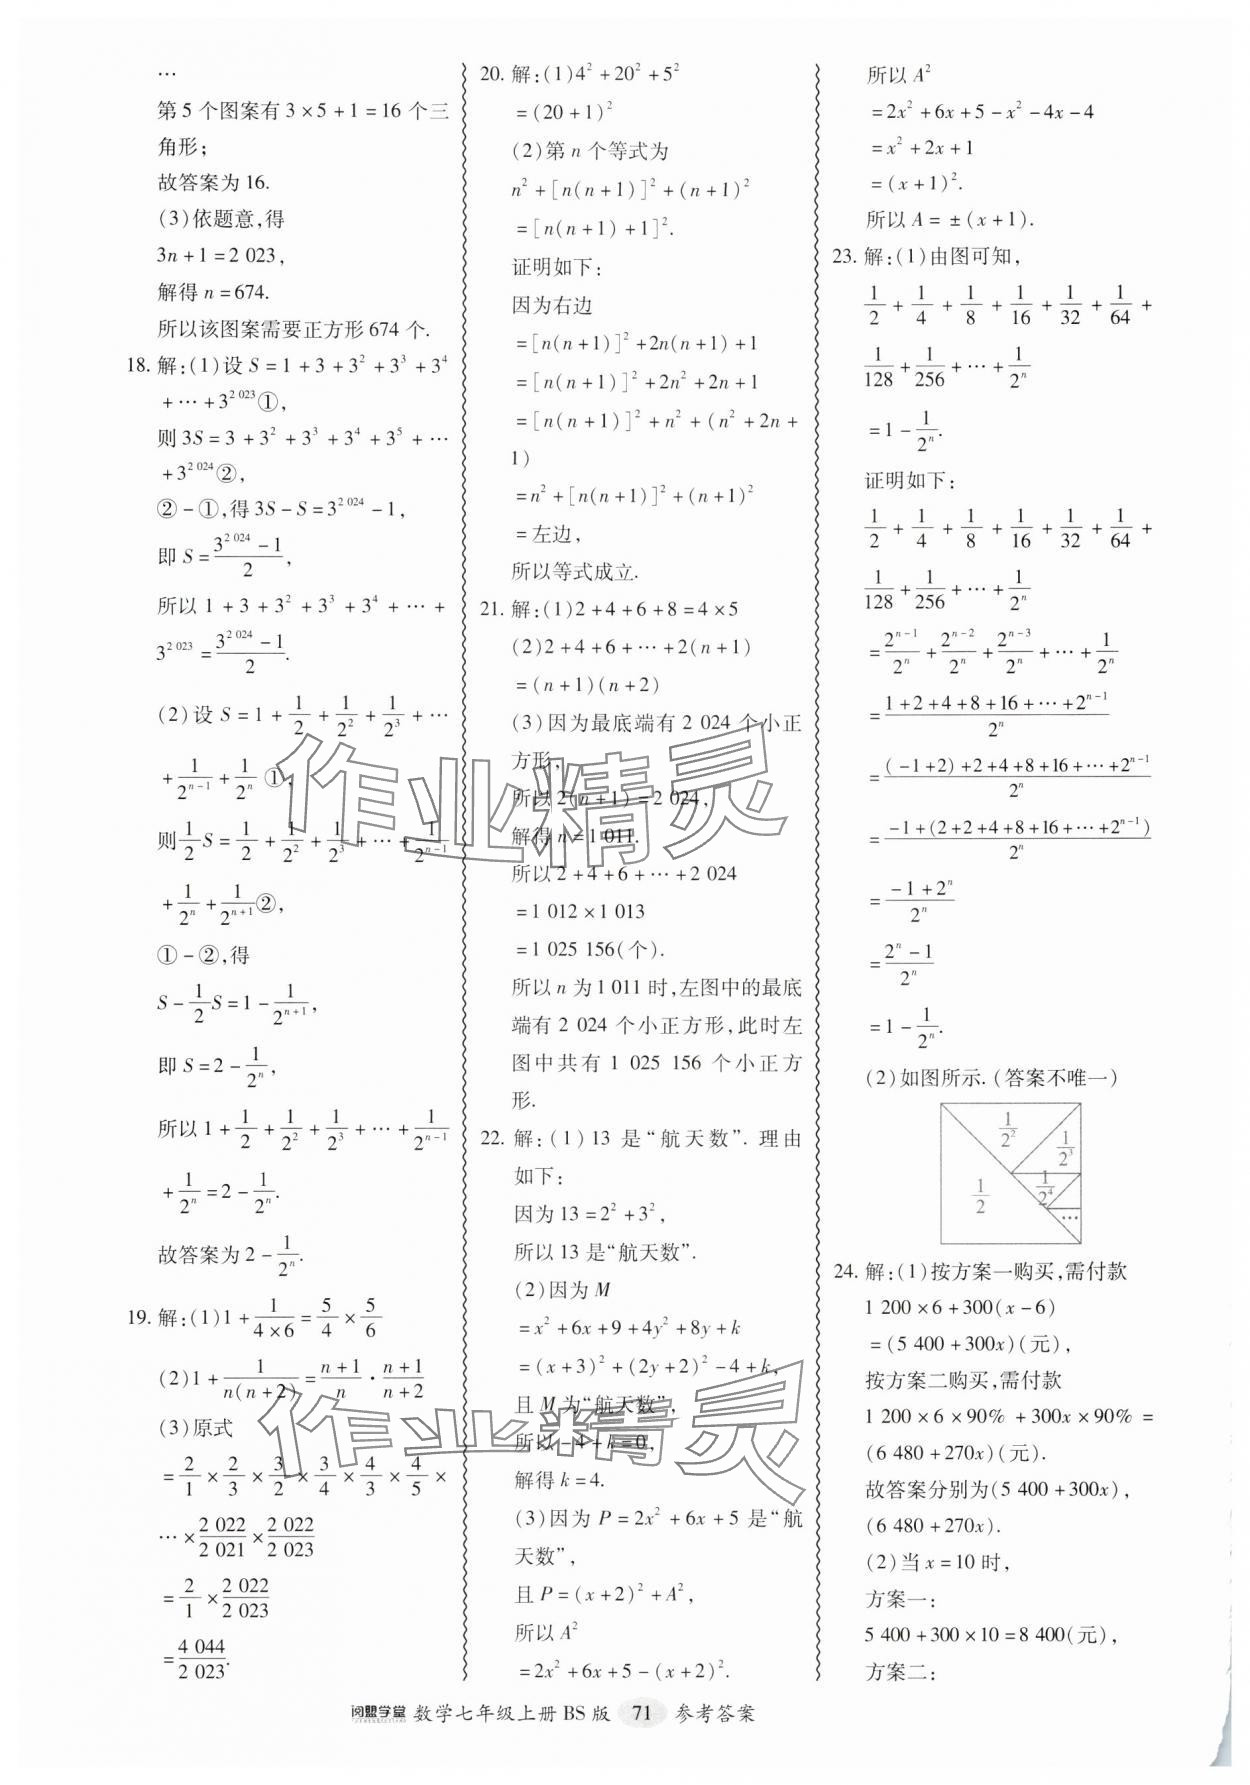 …
第 5 个图案有 3×5+1=16 个三
角形；
故答案为 16.
(3)依题意,得
3n+1=2 023,
解得 n=674.
所以该图案需要正方形 674 个.
18. 解:(1)设 S=1+3+3²+3³+3⁴
+…+3^{2 023}①,
则 3S=3+3²+3³+3⁴+3⁵+…
+3^{2 024}②,
②-①,得 3S-S=3^{2 024}-1,
即 S=\frac{3^{2 024}-1}{2},
所以 1+3+3²+3³+3⁴+…+
3^{2 023}=\frac{3^{2 024}-1}{2}.
(2)设 S=1+\frac{1}{2}+\frac{1}{2²}+\frac{1}{2³}+…
+\frac{1}{2^{n-1}}+\frac{1}{2^n}①,
则\frac{1}{2}S=\frac{1}{2}+\frac{1}{2²}+\frac{1}{2³}+…+\frac{1}{2^{n-1}}
+\frac{1}{2^n}+\frac{1}{2^{n+1}}②,
①-②,得
S-\frac{1}{2}S=1-\frac{1}{2^{n+1}},
即 S=2-\frac{1}{2^n},
所以 1+\frac{1}{2}+\frac{1}{2²}+\frac{1}{2³}+…+\frac{1}{2^{n-1}}
+\frac{1}{2^n}=2-\frac{1}{2^n}.
故答案为 2-\frac{1}{2^n}.
19. 解:(1)1+\frac{1}{4×6}=\frac{5}{4}×\frac{5}{6}
(2)1+\frac{1}{n(n+2)}=\frac{n+1}{n}·\frac{n+1}{n+2}
(3)原式
=\frac{2}{1}×\frac{2}{3}×\frac{3}{2}×\frac{3}{4}×\frac{4}{3}×\frac{4}{5}×
…×\frac{2 022}{2 021}×\frac{2 022}{2 023}
=\frac{2}{1}×\frac{2 022}{2 023}
=\frac{4 044}{2 023}.
20. 解:(1)4²+20²+5²
=(20+1)²
(2)第 n 个等式为
n²+[n(n+1)]²+(n+1)²
=[n(n+1)+1]².
证明如下:
因为右边
=[n(n+1)]²+2n(n+1)+1
=[n(n+1)]²+2n²+2n+1
=[n(n+1)]²+n²+(n²+2n+
1)
=n²+[n(n+1)]²+(n+1)²
=左边,
所以等式成立.
21. 解:(1)2+4+6+8=4×5
(2)2+4+6+…+2(n+1)
=(n+1)(n+2)
(3)因为最底端有 2 024 个小正
方形,
所以 2(n+1)=2 024,
解得 n=1 011.
所以 2+4+6+…+2 024
=1 012×1 013
=1 025 156(个).
所以 n 为 1 011 时,左图中的最底
端有 2 024 个小正方形,此时左
图中共有 1 025 156 个小正方
形.
22. 解:(1)13 是“航天数”. 理由
如下:
因为 13=2²+3²,
所以 13 是“航天数”.
(2)因为 M
=x²+6x+9+4y²+8y+k
=(x+3)²+(2y+2)²-4+k,
且 M 为“航天数”,
所以-4+k=0,
解得 k=4.
(3)因为 P=2x²+6x+5 是“航
天数”,
且 P=(x+2)²+A²,
所以 A²
=2x²+6x+5-(x+2)².
所以 A²
=2x²+6x+5-x²-4x-4
=x²+2x+1
=(x+1)².
所以 A=±(x+1).
23. 解:(1)由图可知,
\frac{1}{2}+\frac{1}{4}+\frac{1}{8}+\frac{1}{16}+\frac{1}{32}+\frac{1}{64}+
\frac{1}{128}+\frac{1}{256}+…+\frac{1}{2^n}
=1-\frac{1}{2^n}.
证明如下:
\frac{1}{2}+\frac{1}{4}+\frac{1}{8}+\frac{1}{16}+\frac{1}{32}+\frac{1}{64}+
\frac{1}{128}+\frac{1}{256}+…+\frac{1}{2^n}
=\frac{2^{n-1}}{2^n}+\frac{2^{n-2}}{2^n}+\frac{2^{n-3}}{2^n}+…+\frac{1}{2^n}
=\frac{1+2+4+8+16+…+2^{n-1}}{2^n}
=\frac{(-1+2)+2+4+8+16+…+2^{n-1}}{2^n}
=\frac{-1+(2+2+4+8+16+…+2^{n-1})}{2^n}
=\frac{-1+2^n}{2^n}
=\frac{2^n-1}{2^n}
=1-\frac{1}{2^n}.
(2)如图所示. (答案不唯一)
\frac{1}{2²}
\frac{1}{2³}
\frac{1}{2}
\frac{1}{2⁴}
…
24. 解:(1)按方案一购买,需付款
1 200×6+300(x-6)
=(5 400+300x)(元),
按方案二购买,需付款
1 200×6×90%+300x×90%=
(6 480+270x)(元).
故答案分别为(5 400+300x),
(6 480+270x).
(2)当 x=10 时,
方案一:
5 400+300×10=8 400(元),
方案二:
作业精灵
作业精灵
阅盟学堂 数学七年级上册 BS 版 71 参考答案